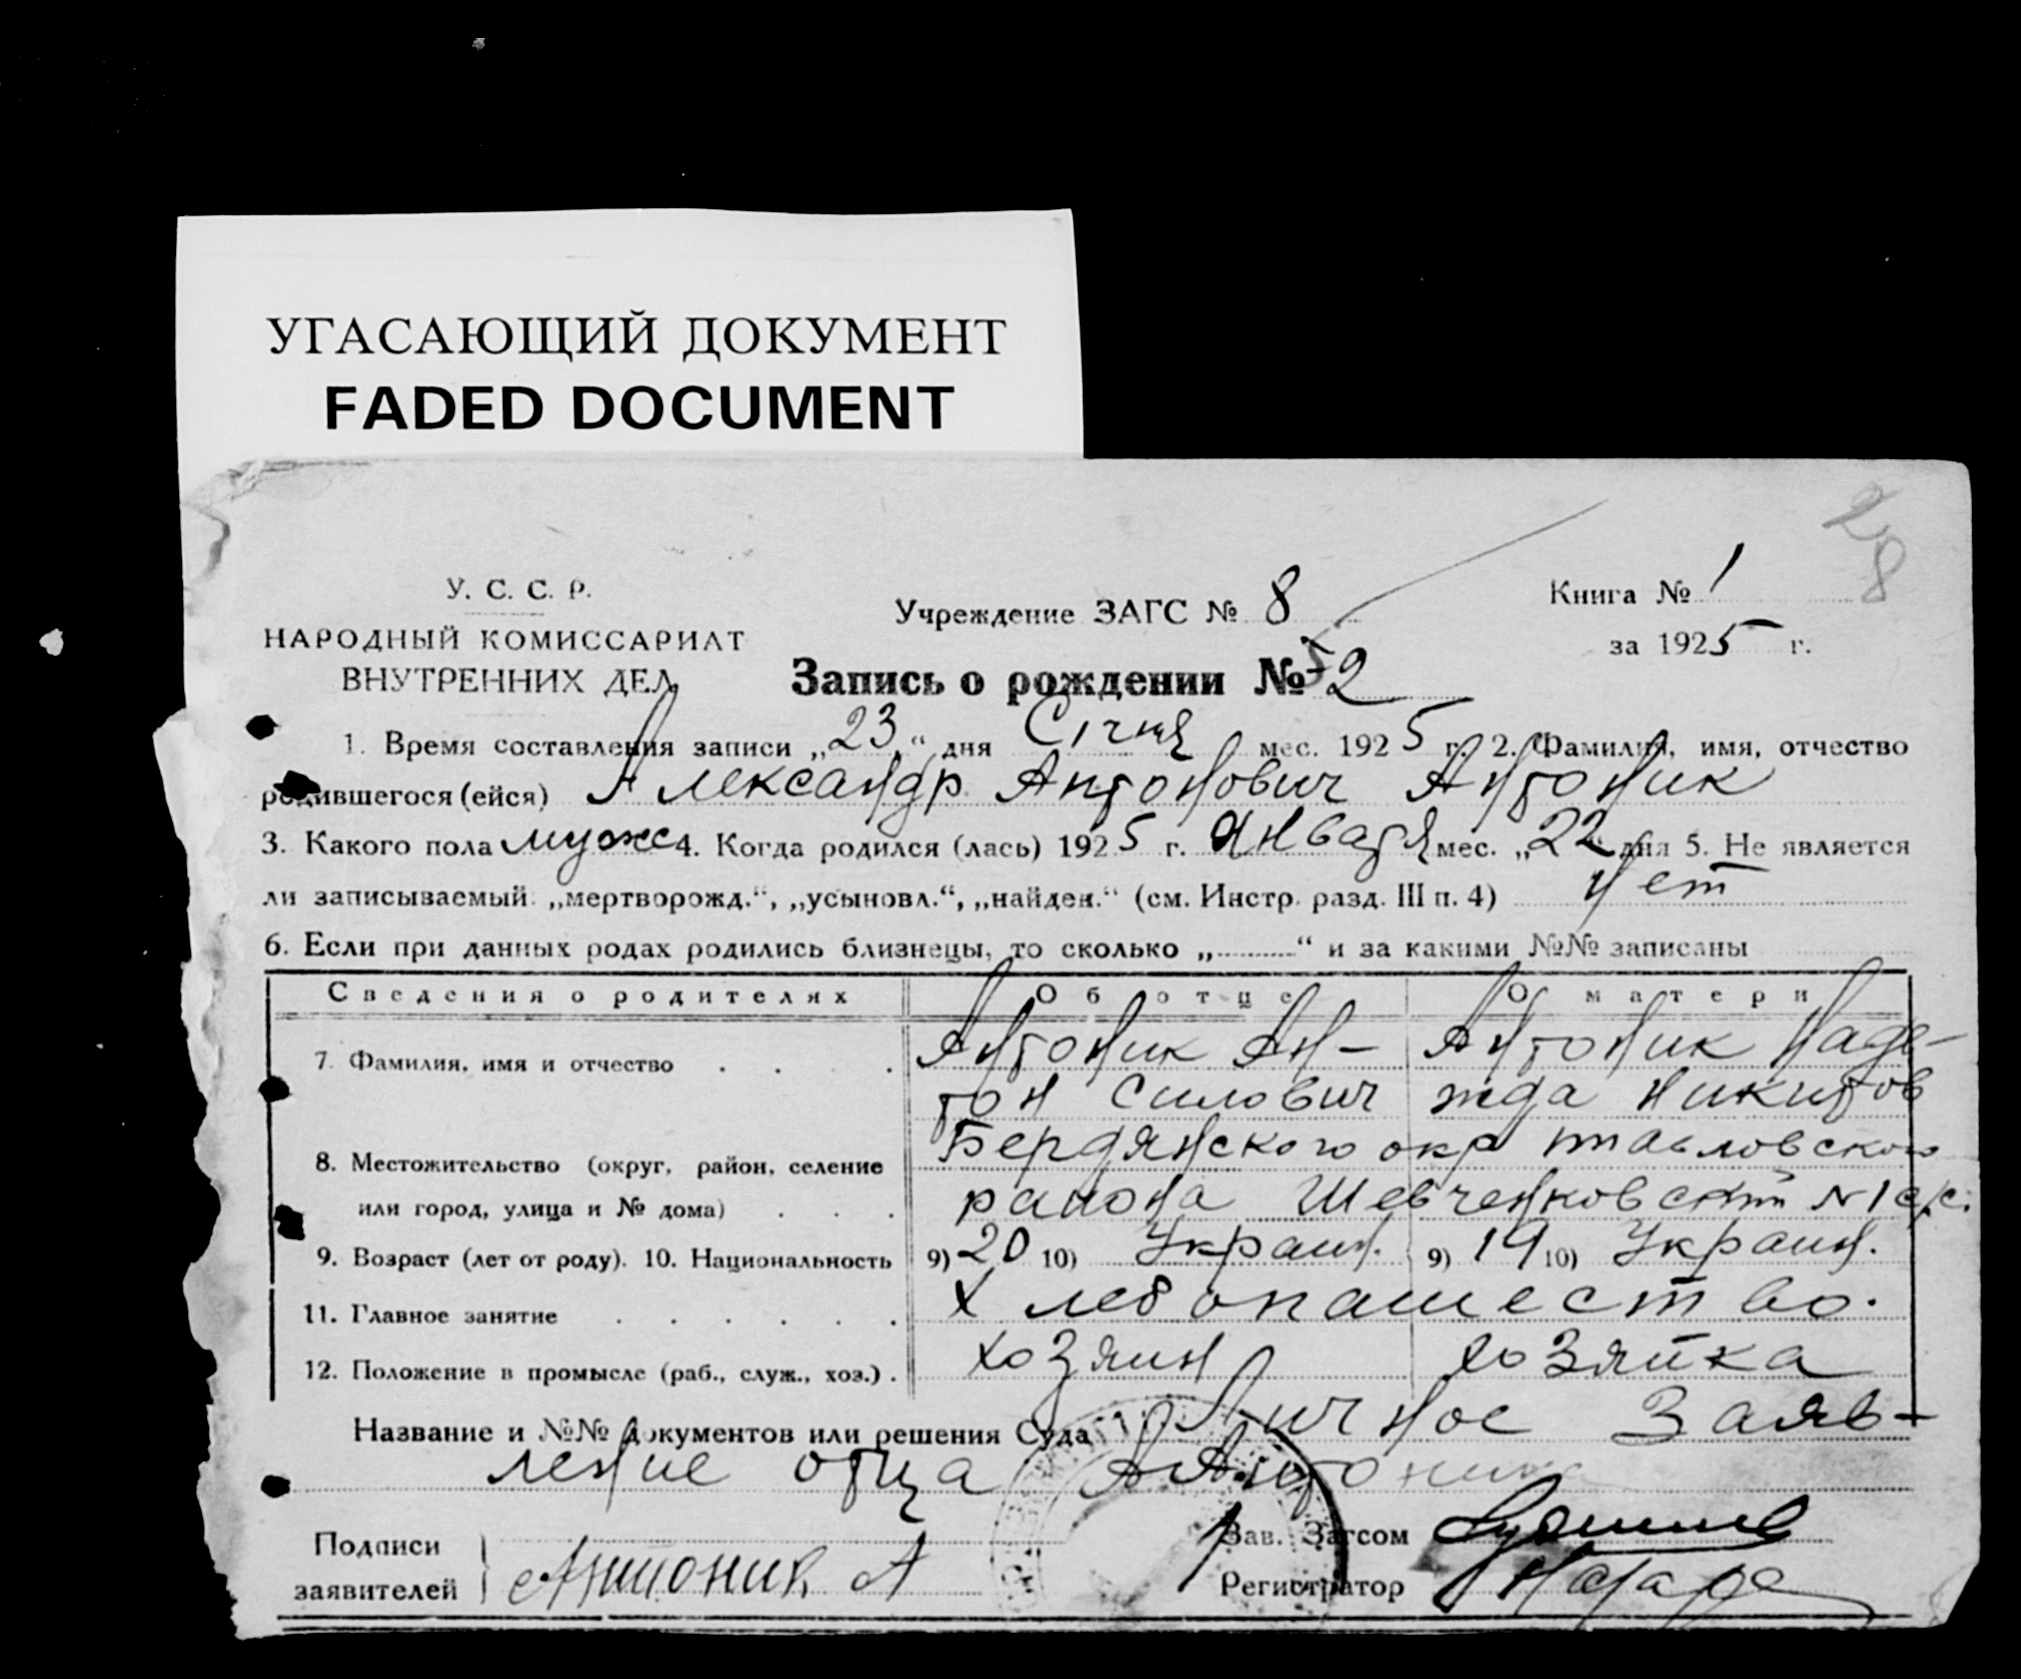 УГАСАЮЩИЙ ДОКУМЕНТ
FADED DOCUMENT
28
У. С. С. Р.
НАРОДНЫЙ КОМИССАРИАТ
ВНУТРЕННИХ ДЕЛ
Учреждение ЗАГС № 8
Книга № 1
за 1925 г.
Запись о рождении № 52
1. Время составления записи „23“ дня Січня мес. 1925 г. 2. Фамилия, имя, отчество
родившегося (ейся) Александр Антонович Антоник
3. Какого пола мужс 4. Когда родился (лась) 1925 г. Января мес. „22“ дня 5. Не является
ли записываемый „мертворожд.“, „усыновл.“, „найден.“ (см. Инстр. разд. III п. 4) нет
6. Если при данных родах родились близнецы, то сколько „ “ и за какими №№ записаны
Сведения о родителях Об отце О матери
7. Фамилия, имя и отчество Антоник Ан- Антоник Наде-
тон Силович жда Никитов
8. Местожительство (округ, район, селение Бердянского окр павловского
или город, улица и № дома) района Шевченковский N 1 с/с.
9. Возраст (лет от роду). 10. Национальность 9) 20 10) Украин. 9) 19 10) Украин.
11. Главное занятие Хлебопашество.
12. Положение в промысле (раб., служ., хоз.) хозяин хозяйка
Название и №№ документов или решения Суда Личное Заяв-
ление отца А Антоника
Подписи
заявителей Антоник А
Зав. Загсом
Регистратор